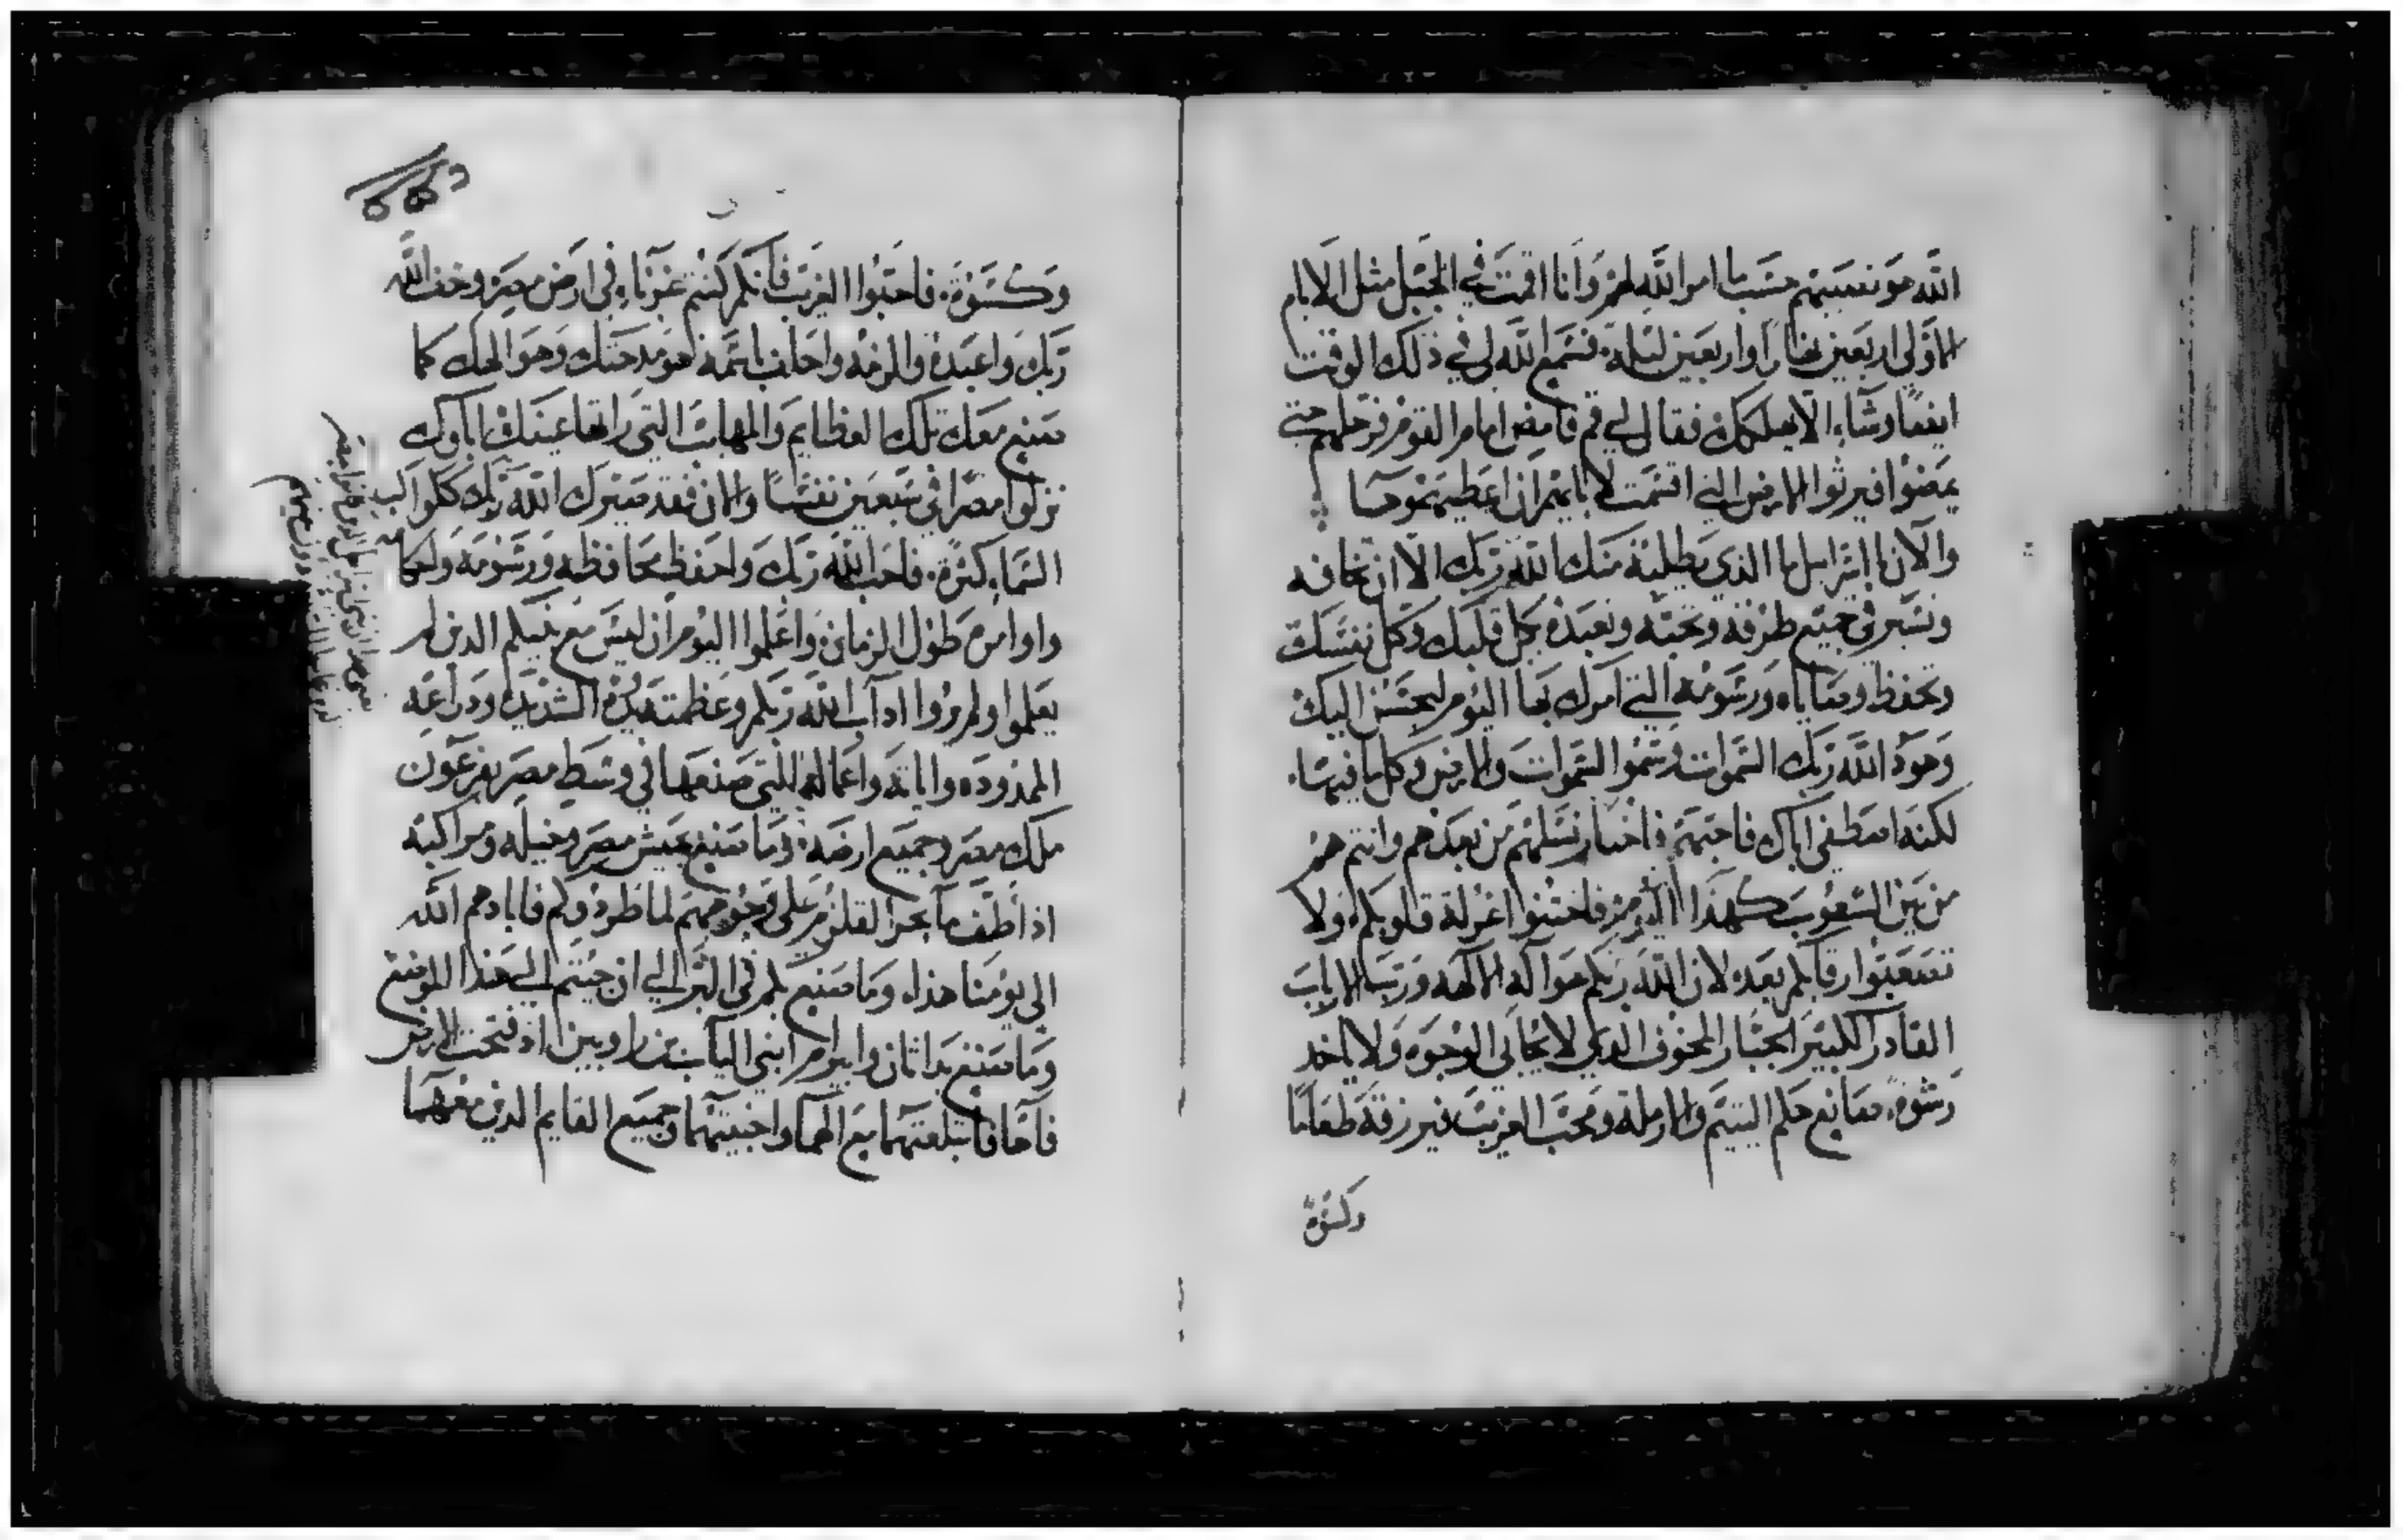 الله هو نصيبهم حسب ما امر الله لهم وانا اقمت في الجبل مثل الايام
الاولى اربعين نهارا واربعين ليلة. فسمع الله لي في ذلك الوقت
ايضا وشاء الا يهلكك فقال لي قم فامض امام القوم فرحلهم حتى
يمضوا فيرثوا الارض التي اقسمت لابايهم ان اعطيهموها
والان يا اسرايل ما الذي يطلبه منك الله ربك الا ان تخافه
وتسير في جميع طرقه وتحبه وتعبده بكل قلبك وكل نفسك
وتحفظ وصاياه ورسومه التي امرك بها اليوم ليحسن اليك
وهوذا لله ربك السموات وسموا السموات والارض وكل ما فيها.
لكنه اصطفى اباك فاحبهم فاختار نسلهم من بعدهم وانتم هم
من بين الشعوب كهذا اليوم فاختنوا غرلة قلوبكم ولا
تصعبوا رقابكم بعد لان الله ربكم هو اله الالهه ورب الارباب
القادر الكبير الجبار المخوف الذي لا يحابي الوجوه ولا ياخد
رشوة. صانع حكم اليتيم والارملة ومحب الغريب فيرزقه طعاما
وكسوة
وكسوة. فاحبوا الغريب فانكم كنتم غربا. في ارض مصر وخف الله
ربك واعبده والزمه واحلف باسمه هو مدحتك وهو الهك كما
صنع معك تلك العظايم والمهابت التي راتها عينك اباوك
نزلوا مصرا في سبعين نفسا والان فقد صيرك الله ربك ككواكب
السماء كثرة. فاحب الله ربك واحفظ محافظه ورسومه واحكامه
واوامره طول الزمان واعلموا اليوم ان ليس مع بنيكم الدين لم
يعلموا ولم يروا اداب الله ربكم وعظمته ويده الشديدة ودراعه
الممدوده واياته واعماله التي صنعها في وسط مصر بفرعون
ملك مصر وجميع ارضه. وما صنع بجيش مصر وخيله ومراكبه
اذ اطف ما بحر القلزم على وجوههم لما طردوكم فابادهم الله
الى يومنا هذا. وما صنع بكم في البر الى ان جيتم الى هذا الموضع
وما صنع بداثان وابيرام ابني الياب بن راوبين اذ فتحت الارض
فاها فابتلعتهما مع الهما واخبيتهما وجميع القايم الدين معهما